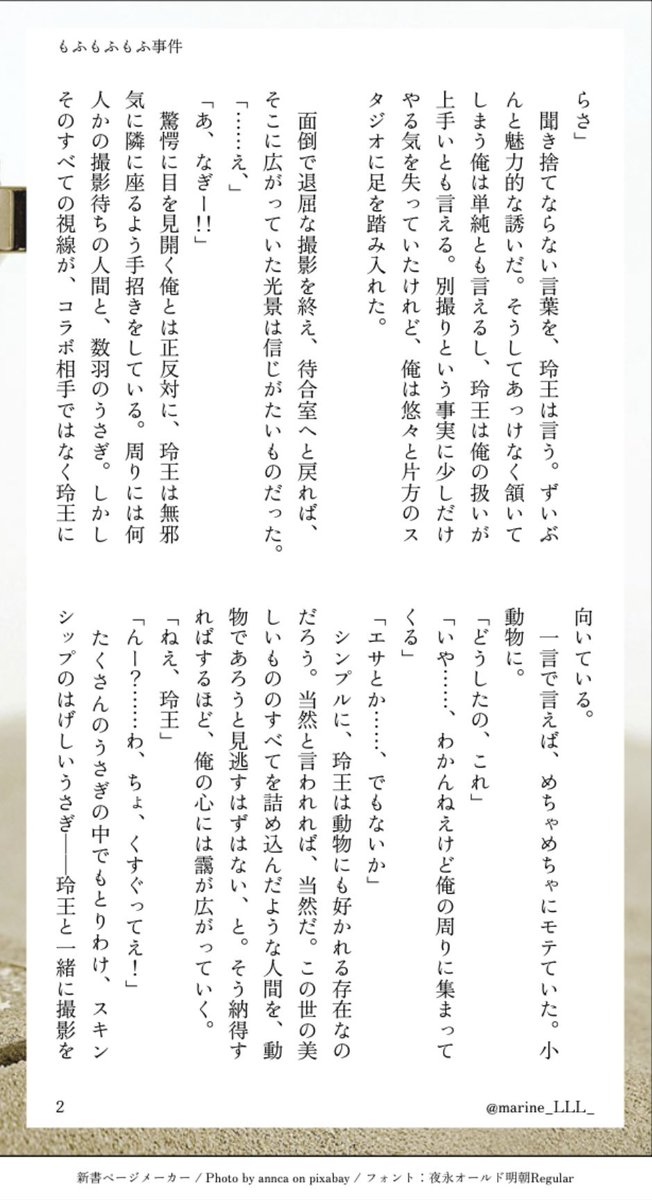 もふもふもふ事件
らさ」
　聞き捨てならない言葉を、玲王は言う。ずいぶ
んと魅力的な誘いだ。そうしてあっけなく頷いて
しまう俺は単純とも言えるし、玲王は俺の扱いが
上手いとも言える。別撮りという事実に少しだけ
やる気を失っていたけれど、俺は悠々と片方のス
タジオに足を踏み入れた。
　面倒で退屈な撮影を終え、待合室へと戻れば、
そこに広がっていた光景は信じがたいものだった。
「……え、」
「あ、なぎー!!」
　驚愕に目を見開く俺とは正反対に、玲王は無邪
気に隣に座るよう手招きをしている。周りには何
人かの撮影待ちの人間と、数羽のうさぎ。しかし
そのすべての視線が、コラボ相手ではなく玲王に
向いている。
　一言で言えば、めちゃめちゃにモテていた。小
動物に。
「どうしたの、これ」
「いや……、わかんねえけど俺の周りに集まって
くる」
「エサとか……、でもないか」
　シンプルに、玲王は動物にも好かれる存在なの
だろう。当然と言われれば、当然だ。この世の美
しいもののすべてを詰め込んだような人間を、動
物であろうと見逃すはずはない、と。そう納得す
ればするほど、俺の心には靄が広がっていく。
「ねえ、玲王」
「んー？……わ、ちょ、くすぐってえ！」
　たくさんのうさぎの中でもとりわけ、スキン
シップのはげしいうさぎ――玲王と一緒に撮影を
2
@marine_LLL_
新書ページメーカー / Photo by annca on pixabay / フォント：夜永オールド明朝Regular